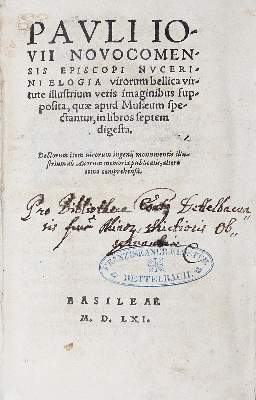 PAVLI IO-
VII NOVOCOMEN-
SIS EPISCOPI NVCERI-
NI ELOGIA virorum bellica vir-
tute illustrium veris imaginibus sup-
posita, quæ apud Musæum spe-
ctantur, in libros septem
digesta.
Doctorum item virorum ingenij monumentis illu-
strium ab eodem memoria publicatis, altero
tomo comprehensa.
Pro Bibliotheca Dettelbacen-
sis
Ob-
servantiæ
FRANZISKANER-KLOSTER
DETTELBACH
BASILEAE
M. D. LXI.